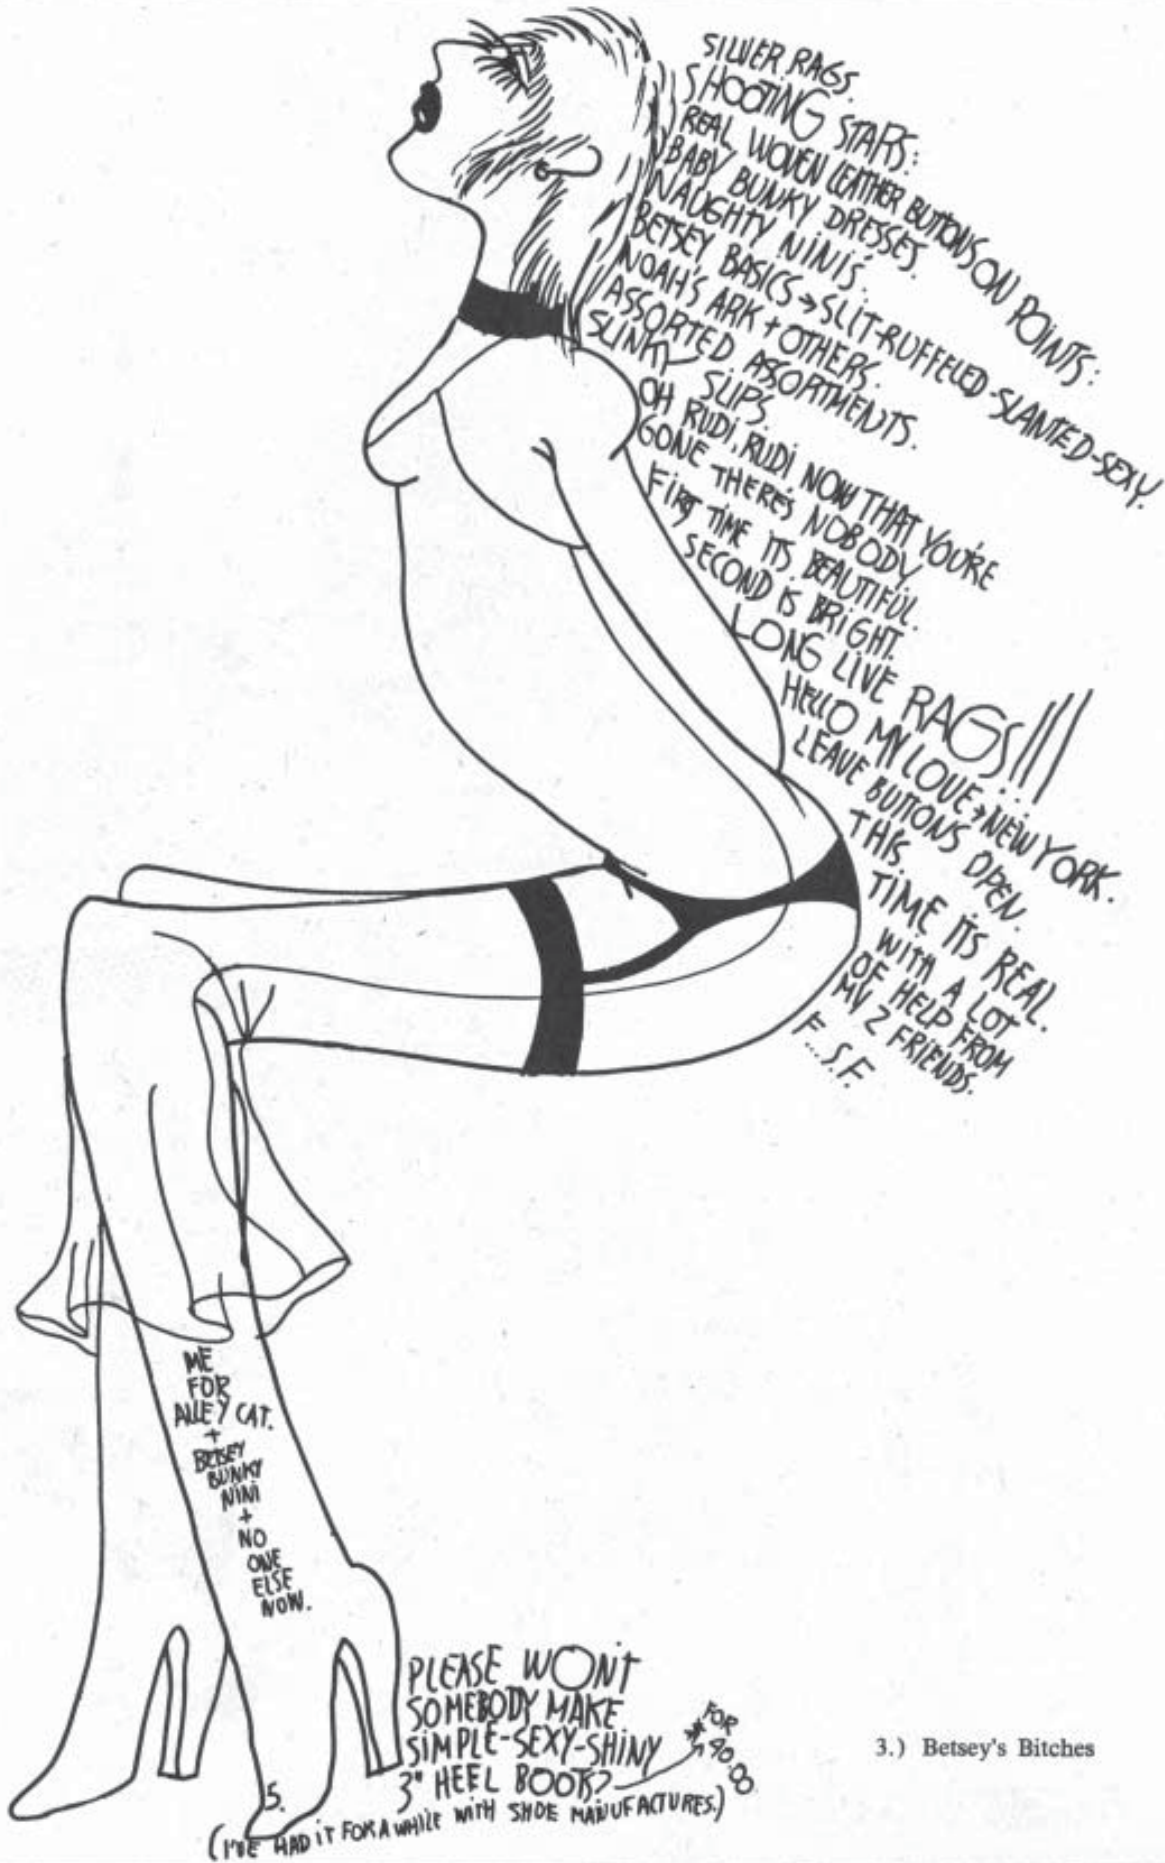 SILVER RAGS.
SHOOTING STARS:
REAL WOVEN LEATHER BUTTONS ON POINTS:
BABY BUNKY DRESSES.
NAUGHTY NINIS.
BETSEY BASICS → SLIT-RUFFELED-SLANTED-SEXY.
NOAH'S ARK + OTHERS.
ASSORTED ASSORTMENTS.
SLINKY SLIPS.
OH RUDI, RUDI NOW THAT YOU'RE
GONE THERE'S NOBODY
FIRST TIME ITS BEAUTIFUL.
SECOND IS BRIGHT.
LONG LIVE RAGS!!!
HELLO MY LOVE → NEW YORK.
LEAVE BUTTONS OPEN.
THIS
TIME ITS REAL.
WITH A LOT
OF HELP FROM
MY 2 FRIENDS.
F...S.F.
ME
FOR
ALLEY CAT.
+
BETSEY
BUNKY
NINI
+
NO
ONE
ELSE
NOW.
PLEASE WON'T
SOMEBODY MAKE
SIMPLE-SEXY-SHINY
3" HEEL BOOTS?
FOR
(I'VE HAD IT FOR A WHILE WITH SHOE MANUFACTURES.)
5.
3.) Betsey's Bitches